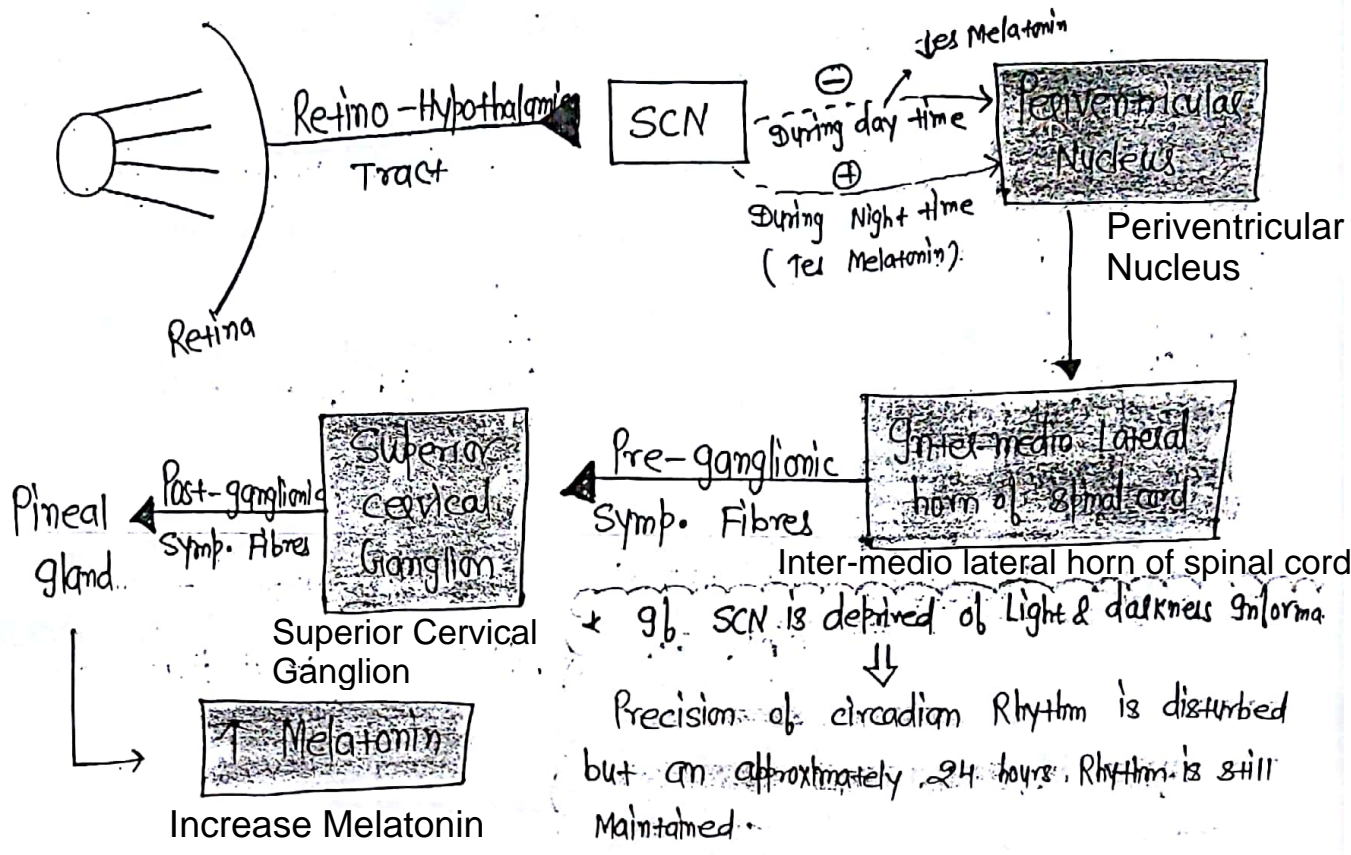 Retino-Hypothalamic
Tract
Retina
SCN
⊖
↓es Melatonin
During day time
⊕
During Night time
(↑es Melatonin).
Periventricular
Nucleus
Periventricular
Nucleus
Inter-medio Lateral
horn of spinal cord
Inter-medio lateral horn of spinal cord
Pre-ganglionic
Symp. Fibres
Superior
Cervical
Ganglion
Superior Cervical
Ganglion
Post-ganglionic
Symp. Fibres
Pineal
gland
↑ Melatonin
Increase Melatonin
* If SCN is deprived of Light & darkness Informa
⇓
Precision of circadian Rhythm is disturbed
but an approxmately 24 hours Rhythm is still
Maintained.